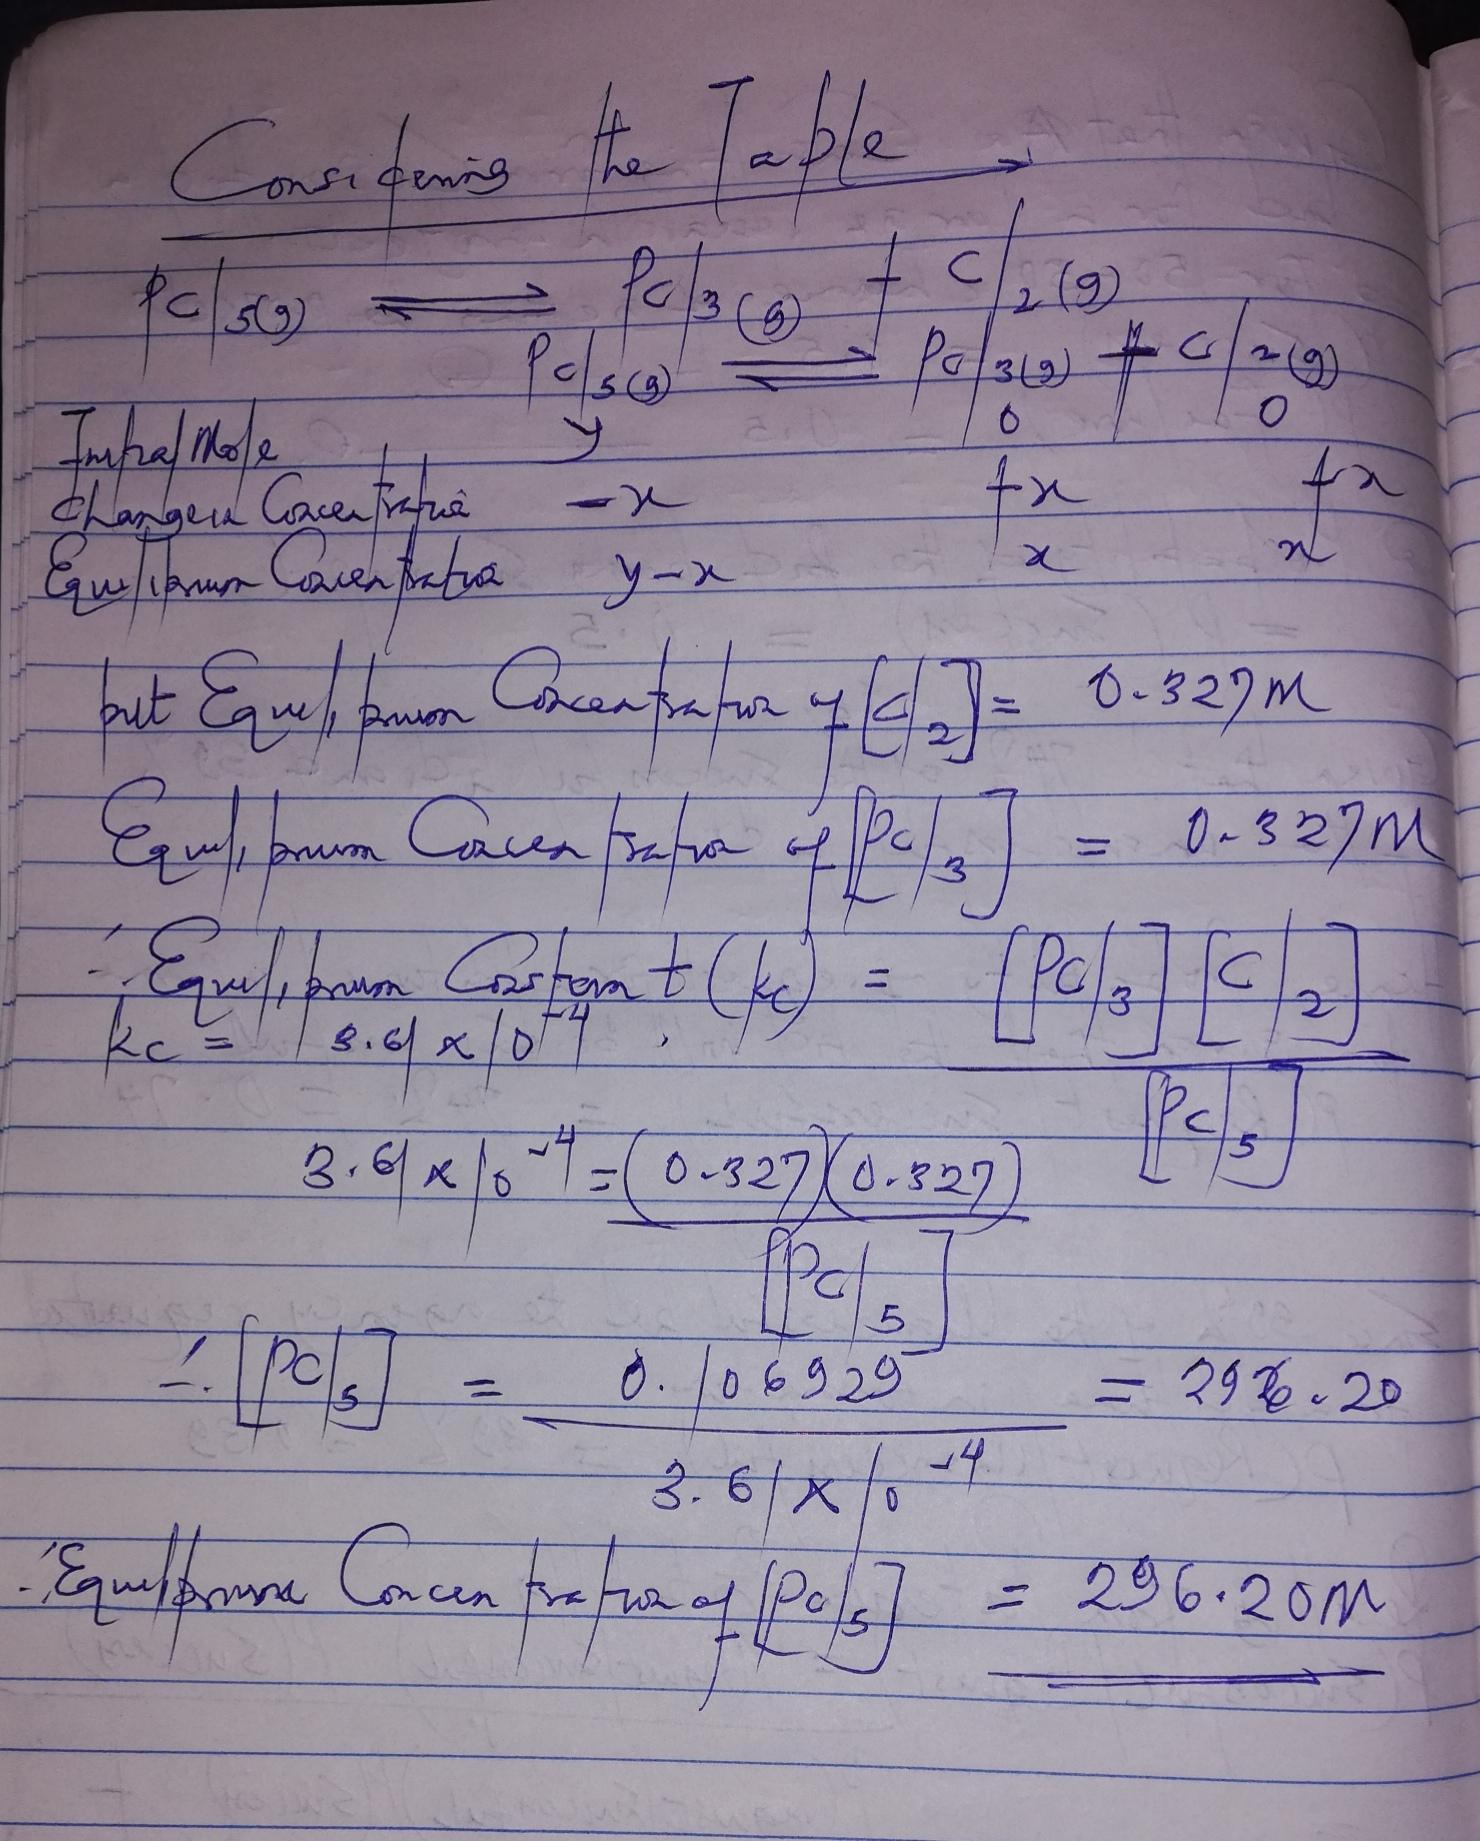 Considering the Table
PCl5(g) ⇌ PCl3(g) + Cl2(g)
PCl5(g) ⇌ PCl3(g) + Cl2(g)
Initial Mole y 0 0
Change in Concentration -x +x +x
Equilibrium Concentration y-x x x
but Equilibrium Concentration of [Cl2] = 0.327M
Equilibrium Concentration of [PCl3] = 0.327M
∴ Equilibrium Constant (kc) = [PCl3] [Cl2] / [PCl5]
kc = 3.61 x 10^-4
3.61 x 10^-4 = (0.327)(0.327) / [PCl5]
∴ [PCl5] = 0.106929 / 3.61 x 10^-4 = 296.20
∴ Equilibrium Concentration of [PCl5] = 296.20M